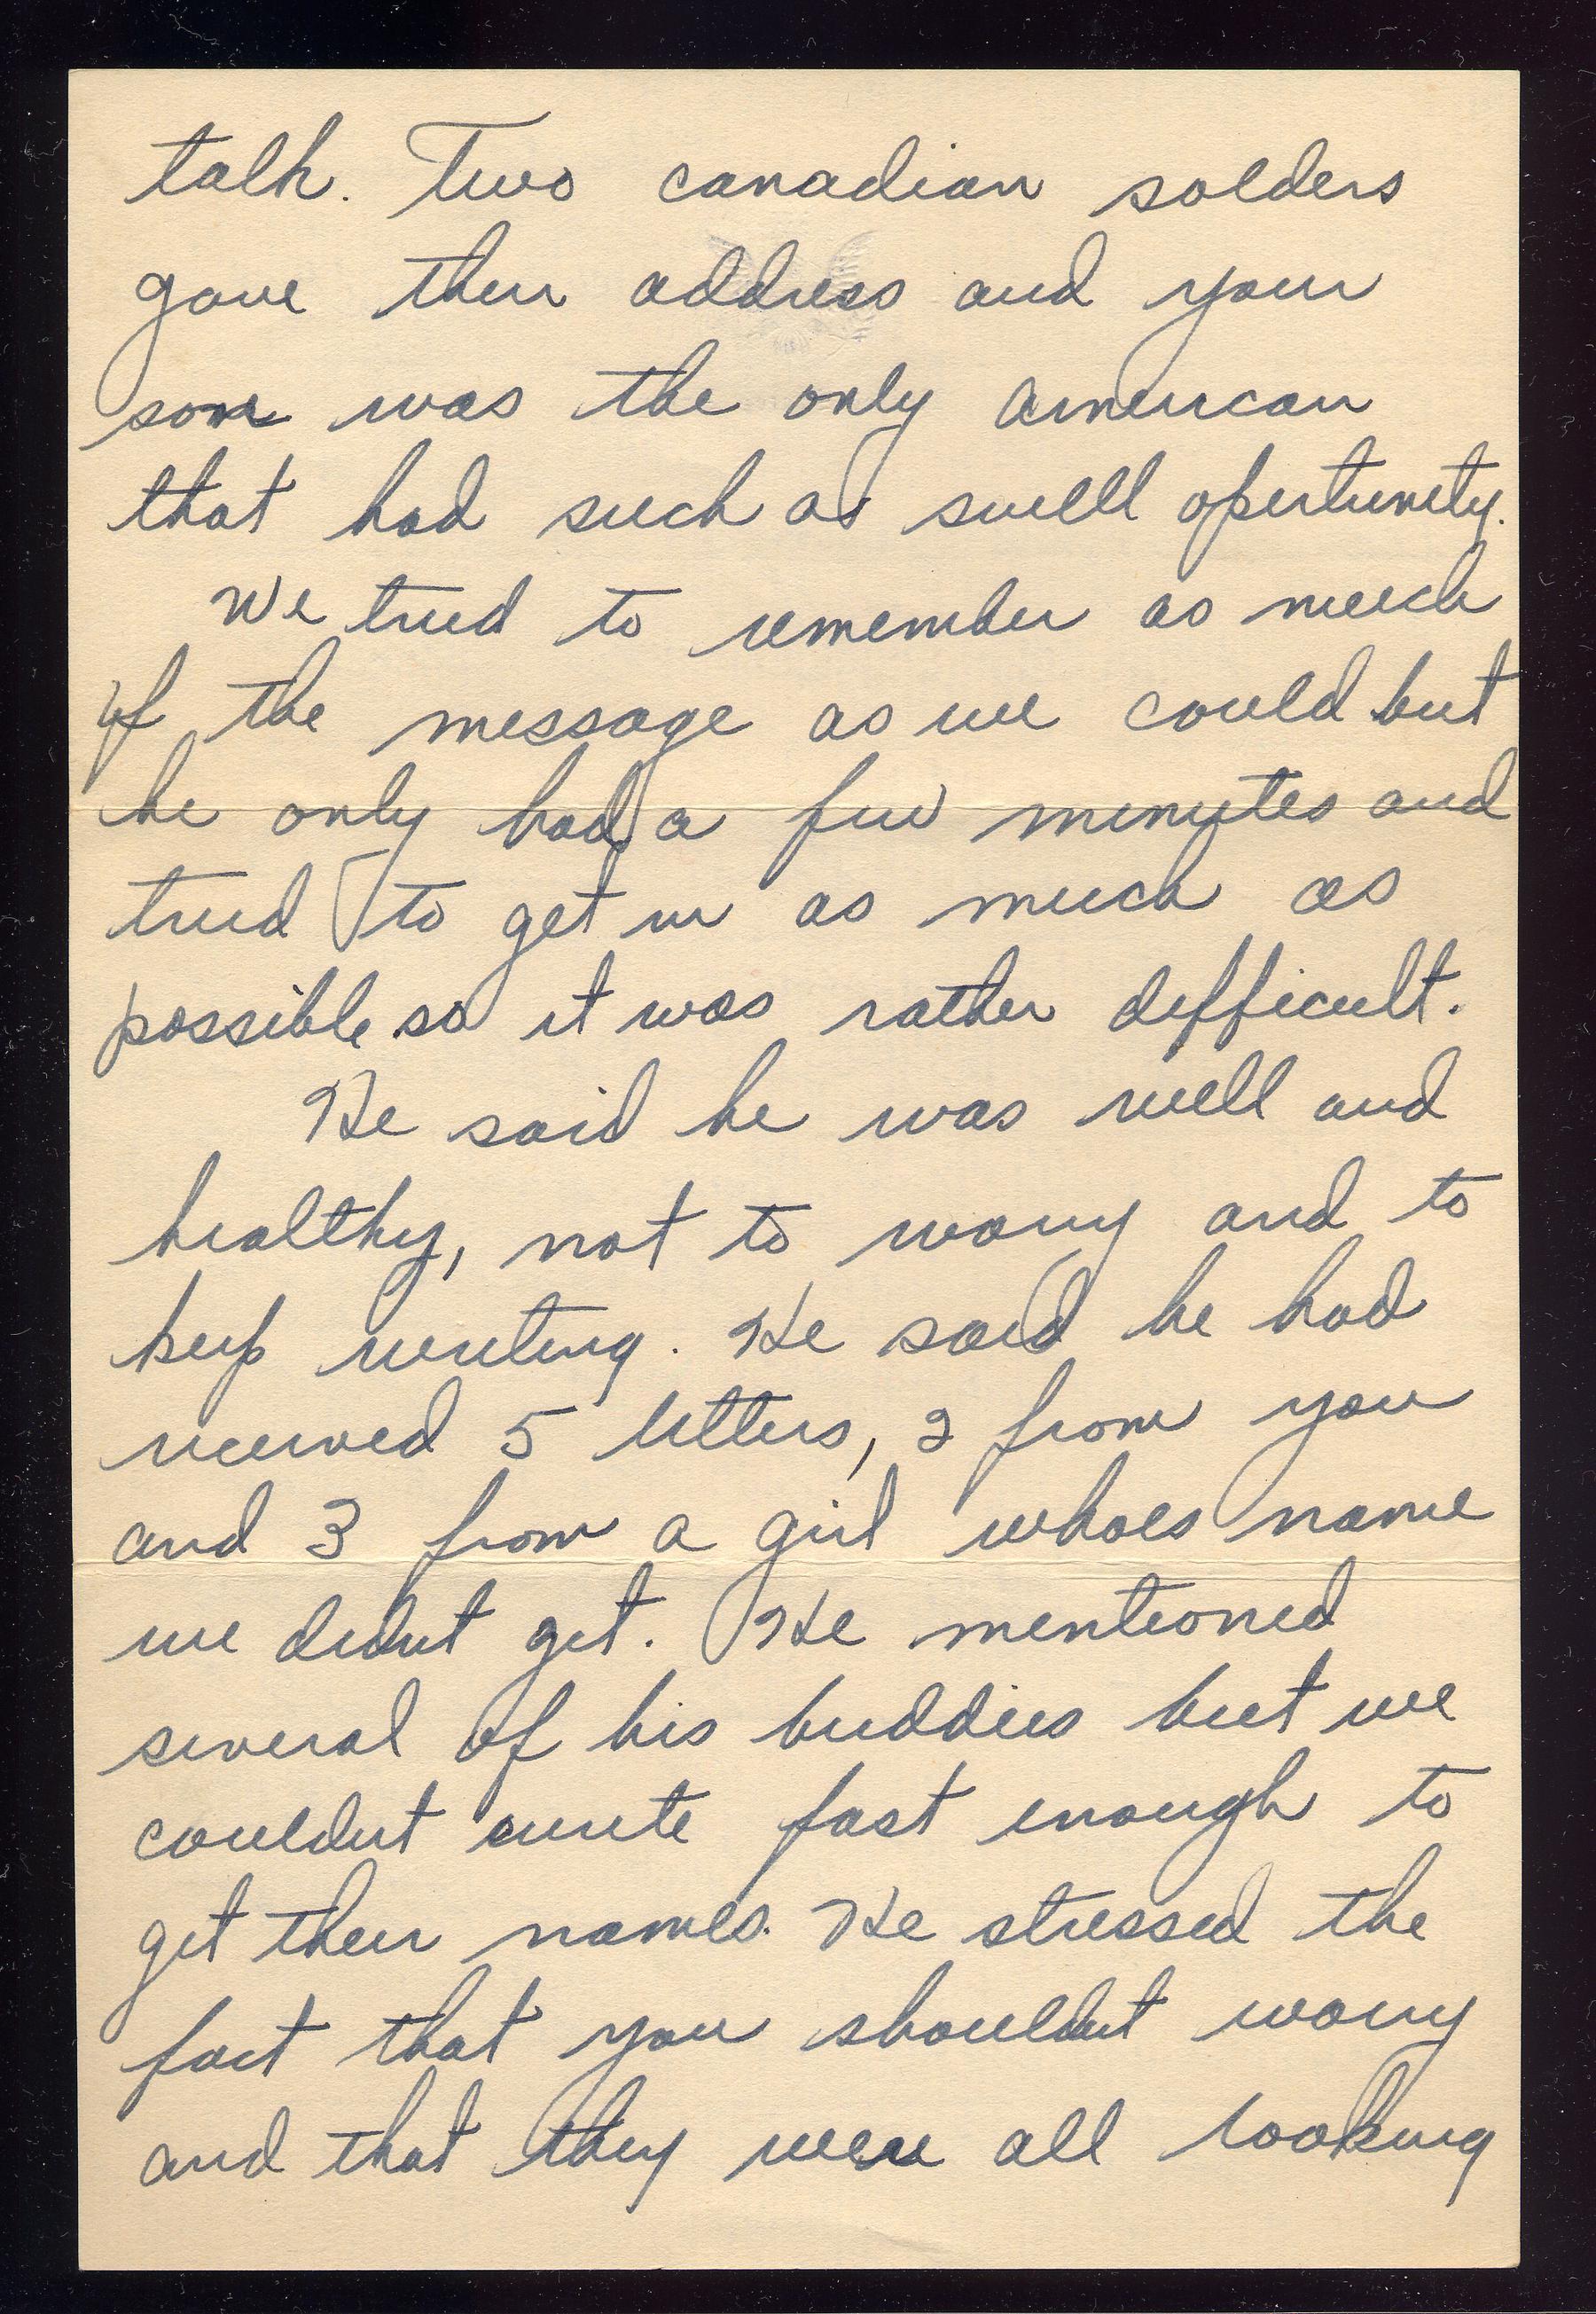 talk. Two canadian solders
gave their address and your
son was the only american
that had such a swell opertunity.
We tried to remember as much
of the message as we could but
he only had a few minutes and
tried to get in as much as
possible so it was rather difficult.
He said he was well and
healthy, not to worry and to
keep writing. He said he had
received 5 letters, 2 from you
and 3 from a girl whoes name
we didnt get. He mentioned
several of his buddies but we
couldnt write fast enough to
get their names. He stressed the
fact that you shouldnt worry
and that they were all looking